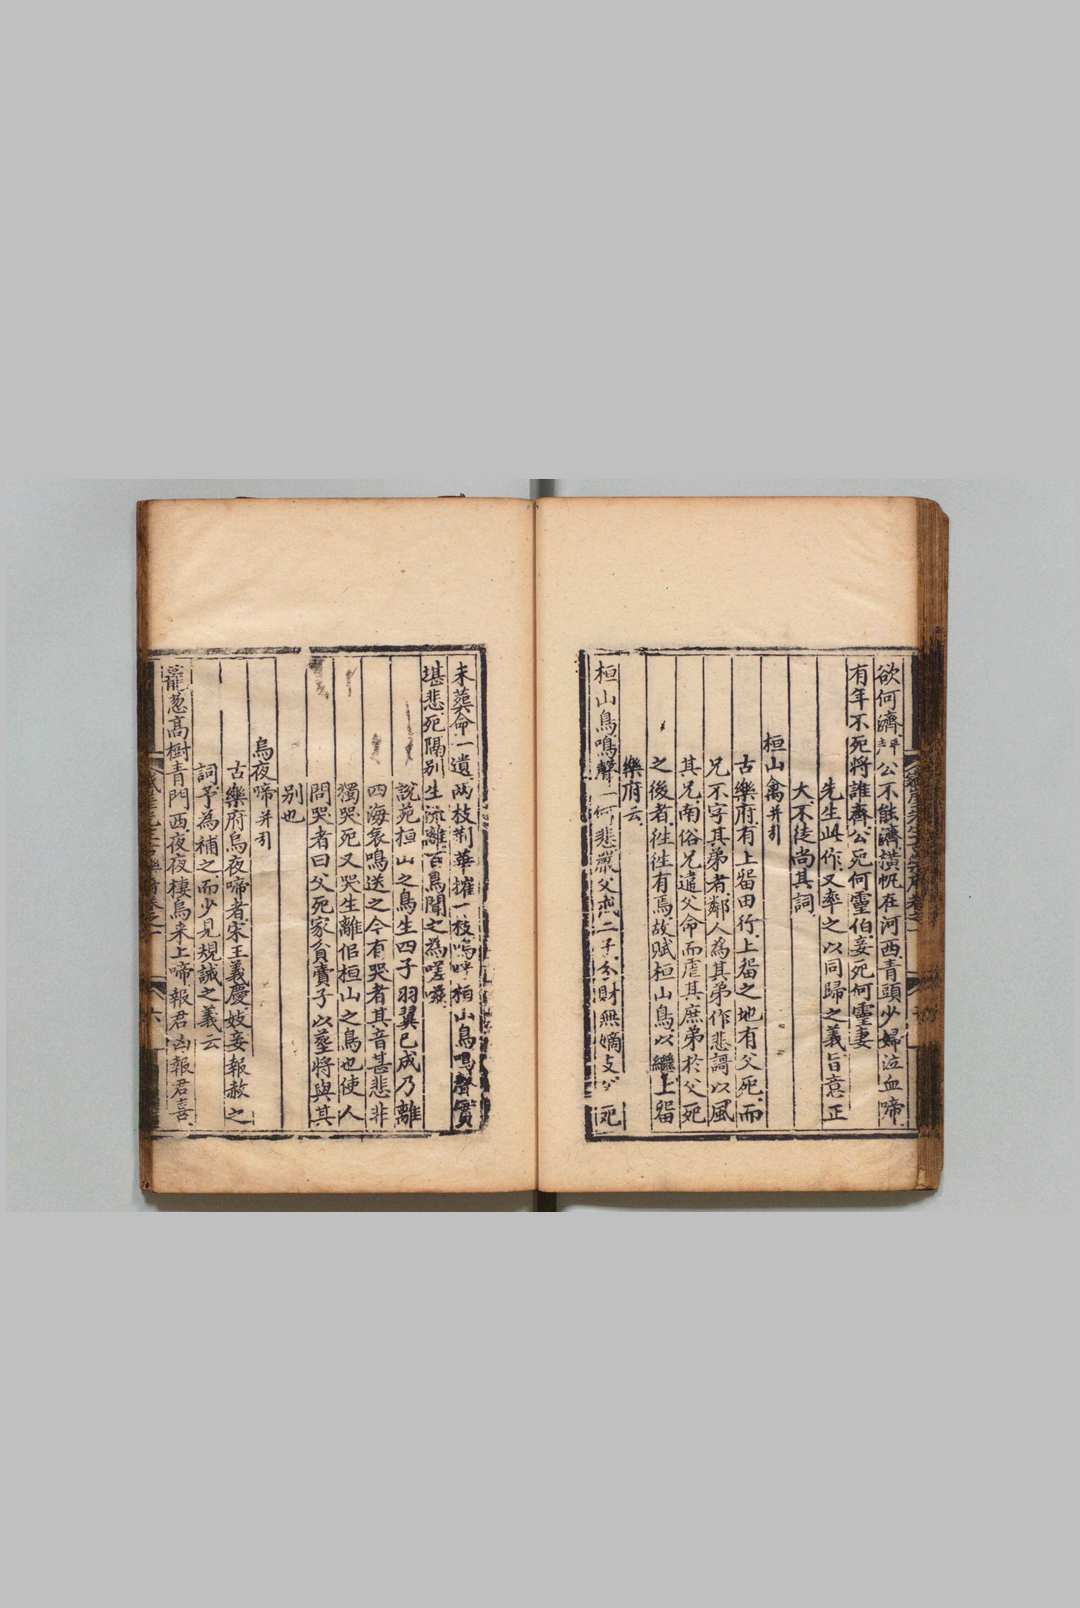 欲何濟呼公不能濟潢帆在河西青頭少婦泣血啼
有年不死將誰齊公死何靈伯妾死何靈妻
先生此作又率之以同歸之義旨意正
大不徒尚其詞
桓山禽并引
古樂府有上留田行上留之地有父死而
兄不字其弟者鄰人為其弟作悲謌以風
其兄南俗兄違父命而虐其庶弟於父死
之後者徃徃有焉故賦桓山鳥以繼上留
樂府云
桓山鳥鳴聲一何悲嚴父二子分財無嫡父死
未塟命一遺两枝荊華摧一枝嗚呼桓山鳥鳴聲實
堪悲死隔别生流離百鳥聞之為嗟
說苑桓山之鳥生四子羽翼已成乃離
四海哀鳴送之今有哭者其音甚悲非
獨哭死又哭生離佀桓山之鳥也使人
問哭者曰父死家貧賣子以塟將與其
别也
烏夜啼并引
古樂府烏夜啼者宋王義慶妓妾報赦之
詞予為補之而少見規誡之義云
蘢葱高樹青門西夜夜棲烏来上啼報君凶報君喜